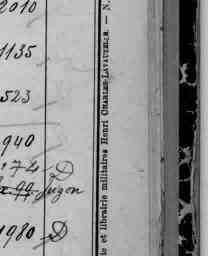 2010
1135
523
940
174 D
1980 D
te et librairie militaires Henri CHARLES-LAVAUZELLE. — N.